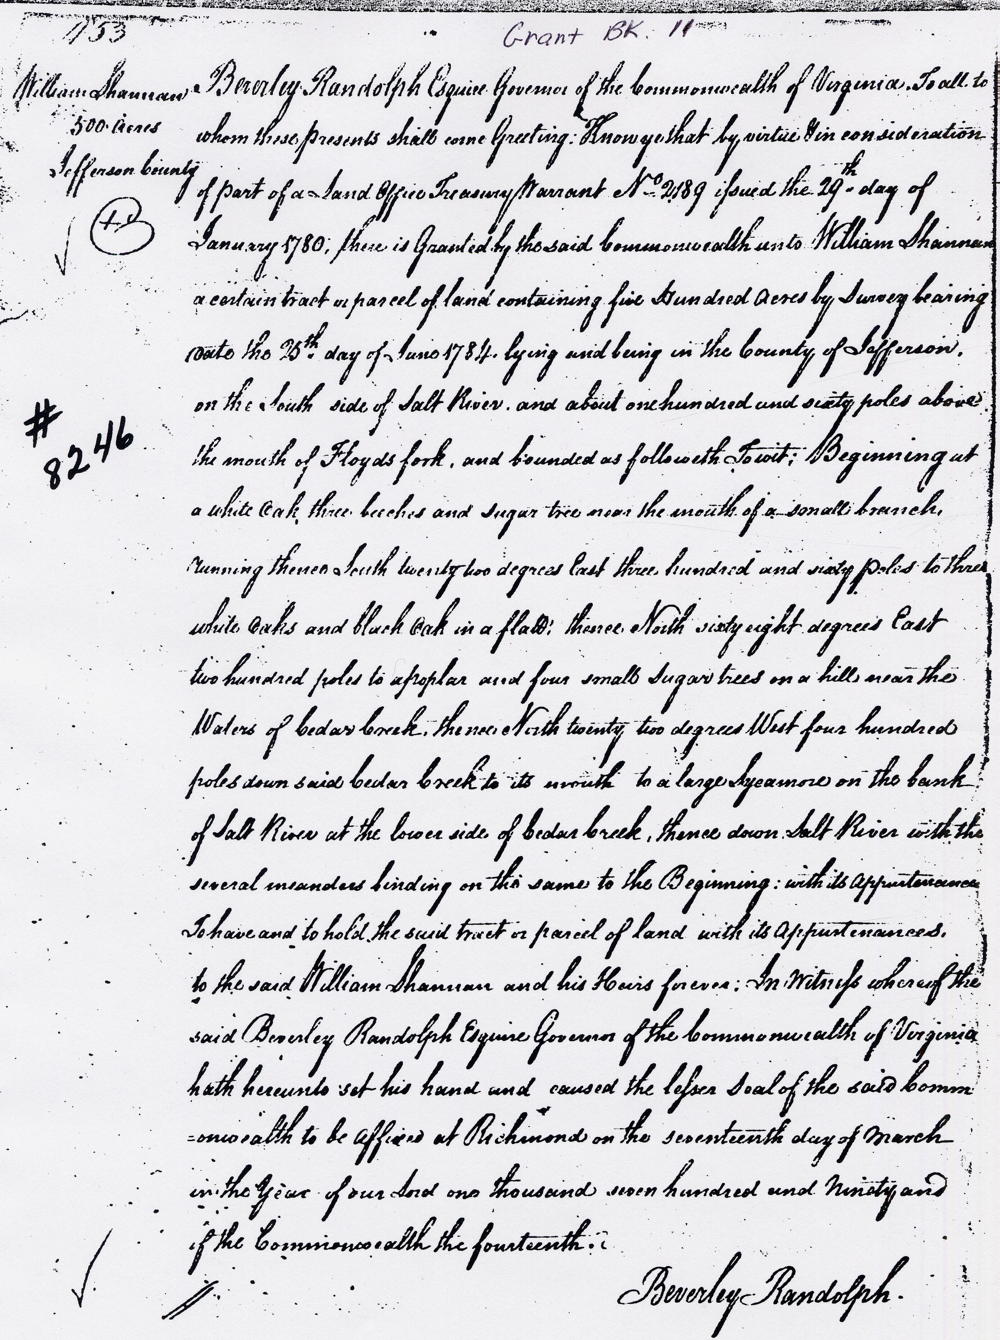 1153
Grant BK. 11
William Shannan
500 Acres
Jefferson County
# 8246
Beverley Randolph Esquire Governor of the Commonwealth of Virginia. To all to
whom these presents shall come Greeting: Know ye that by virtue & in consideration
of part of a Land Office Treasury Warrant No. 2189 issued the 29th day of
January 1780, there is Granted by the said Commonwealth unto William Shannan
a certain tract or parcel of land containing five Hundred Acres by Survey bearing
date the 25th day of June 1784. lying and being in the County of Jefferson.
on the South side of Salt River. and about one hundred and sixty poles above
the mouth of Floyds fork, and bounded as followeth Towit; Beginning at
a white Oak, three beeches and sugar tree near the mouth of a small branch,
running thence South twenty two degrees East three hundred and sixty poles to three
white Oaks and black Oak in a flatt; thence North sixty eight degrees East
two hundred poles to a poplar and four small Sugar trees on a hill near the
Waters of Cedar Creek, thence North twenty two degrees West four hundred
poles down said Cedar Creek to its mouth to a large Sycamore on the bank
of Salt River at the lower side of Cedar Creek, thence down Salt River with the
several meanders binding on the same to the Beginning: with its Appurtenances
To have and to hold the said tract or parcel of land with its Appurtenances.
to the said William Shannan and his Heirs forever: In Witness whereof the
said Beverley Randolph Esquire Governor of the Commonwealth of Virginia
hath hereunto set his hand and caused the lesser Seal of the said Comm
=onwealth to be affixed at Richmond on the seventeenth day of March
in the Year of our Lord one thousand seven hundred and Ninety and
of the Commonwealth the fourteenth.
Beverley Randolph.